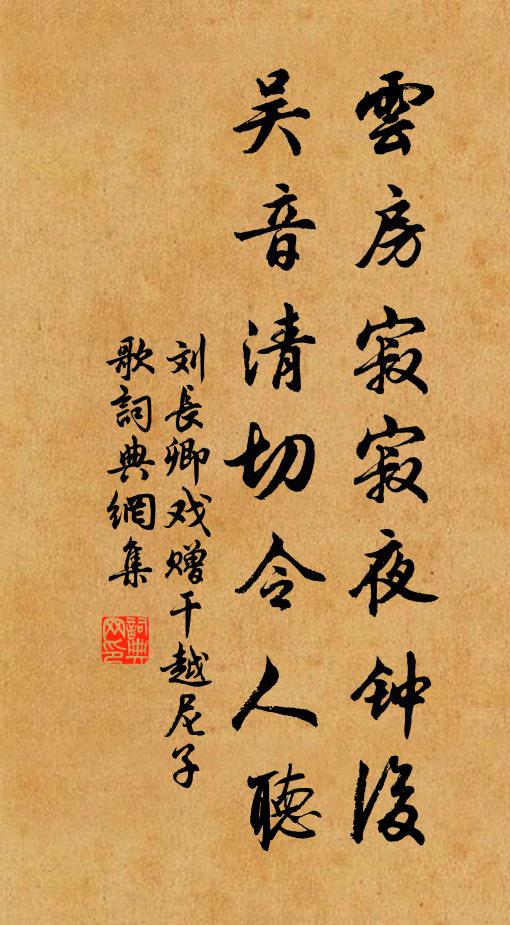 雲房寂寂夜钟後
吴音清切令人聽
刘長卿戏赠干越尼子
歌詞典網集
詞典网印